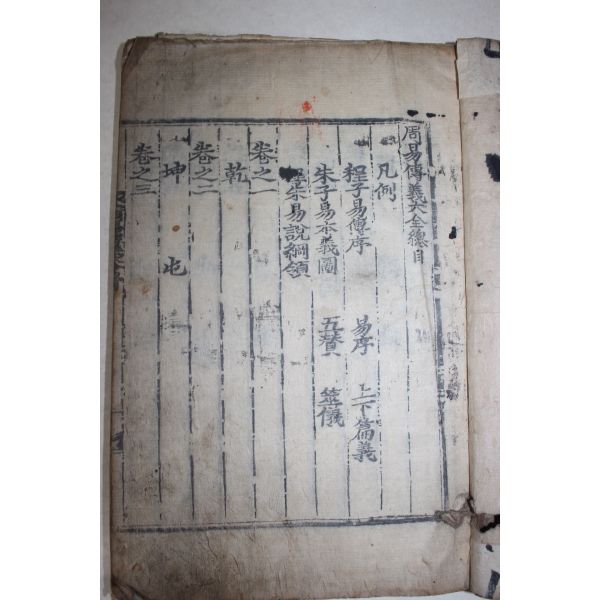 周易傳義大全總目
凡例
程子易傳序 易序 上下篇義
朱子易本義圖 五贊 筮儀
程朱易說綱領
卷之一
乾
卷之二
坤 屯
卷之三